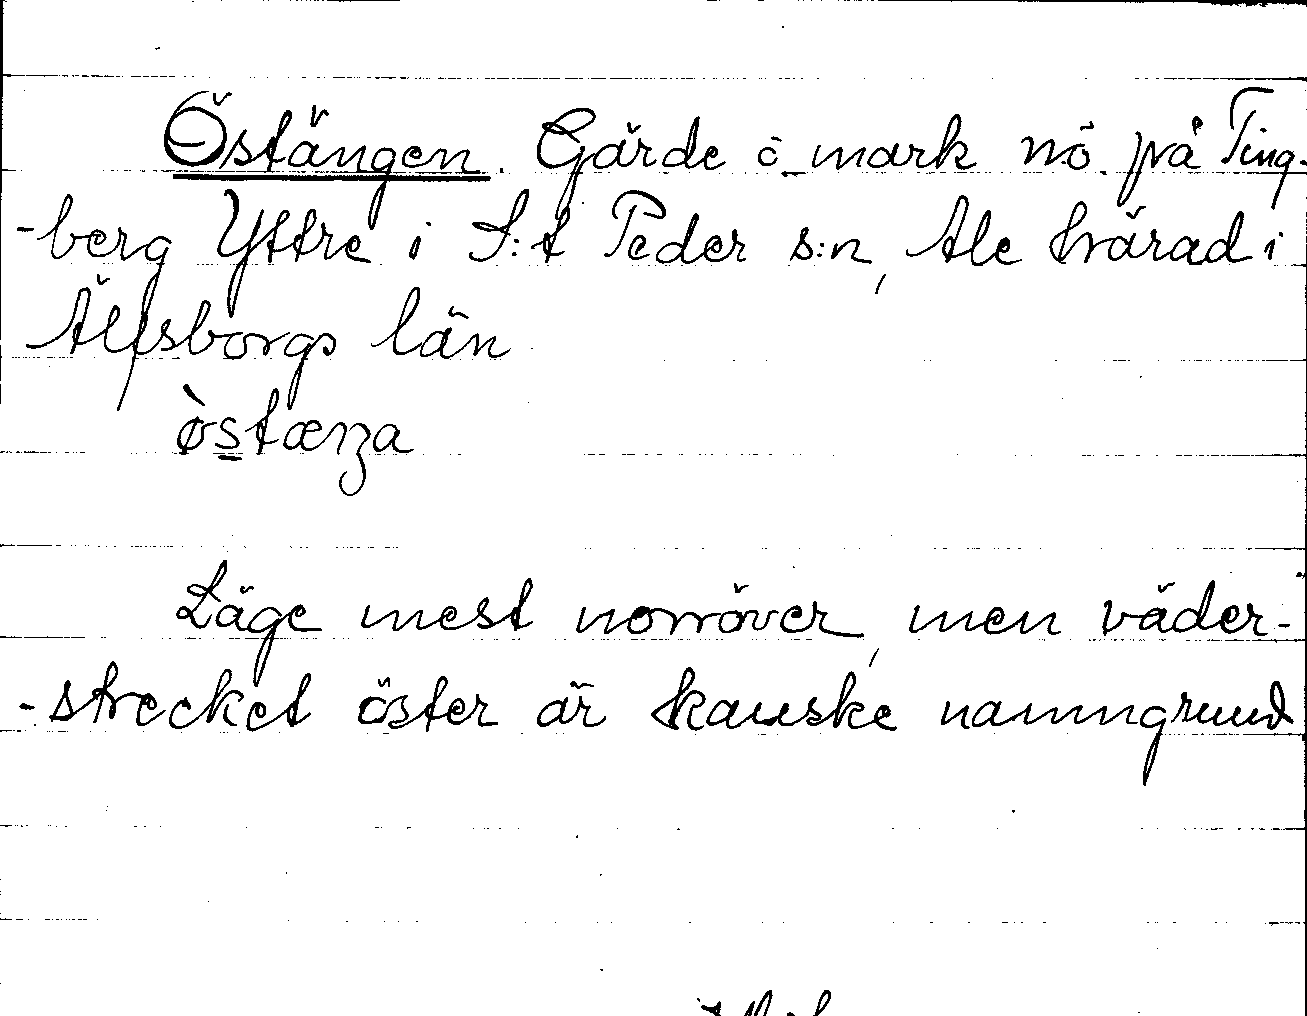 Östängen. Gärde ö. mark nö. på Ting-
-berg Yttre i S:t Peder s:n, Ale härad i
Älfsborgs län
ø̀stæŋa
Läge mest norröver, men väder-
-strecket öster är kanske namngrund